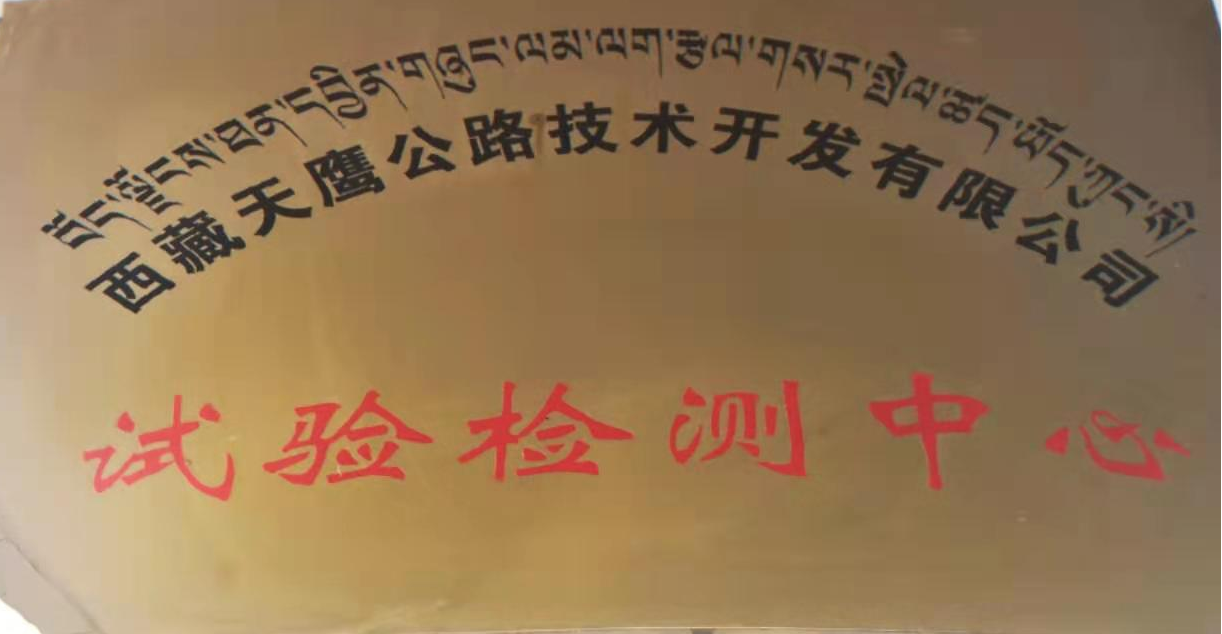 བོད་ལྗོངས་ཐན་དབྱིན་གཞུང་ལམ་ལག་རྩལ་གསར་སྤེལ་ཚད་ཡོད་ཀུང་སི
西藏天鹰公路技术开发有限公司
试验检测中心